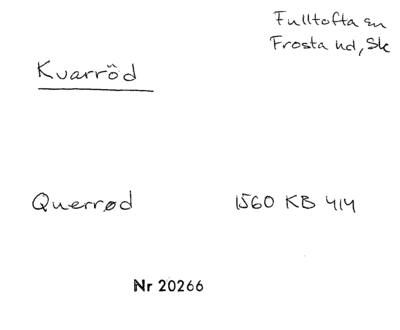 Fulltofta sn
Frosta hd, Sk
Kvarröd
Querrød 1560 KB 414
Nr 20266